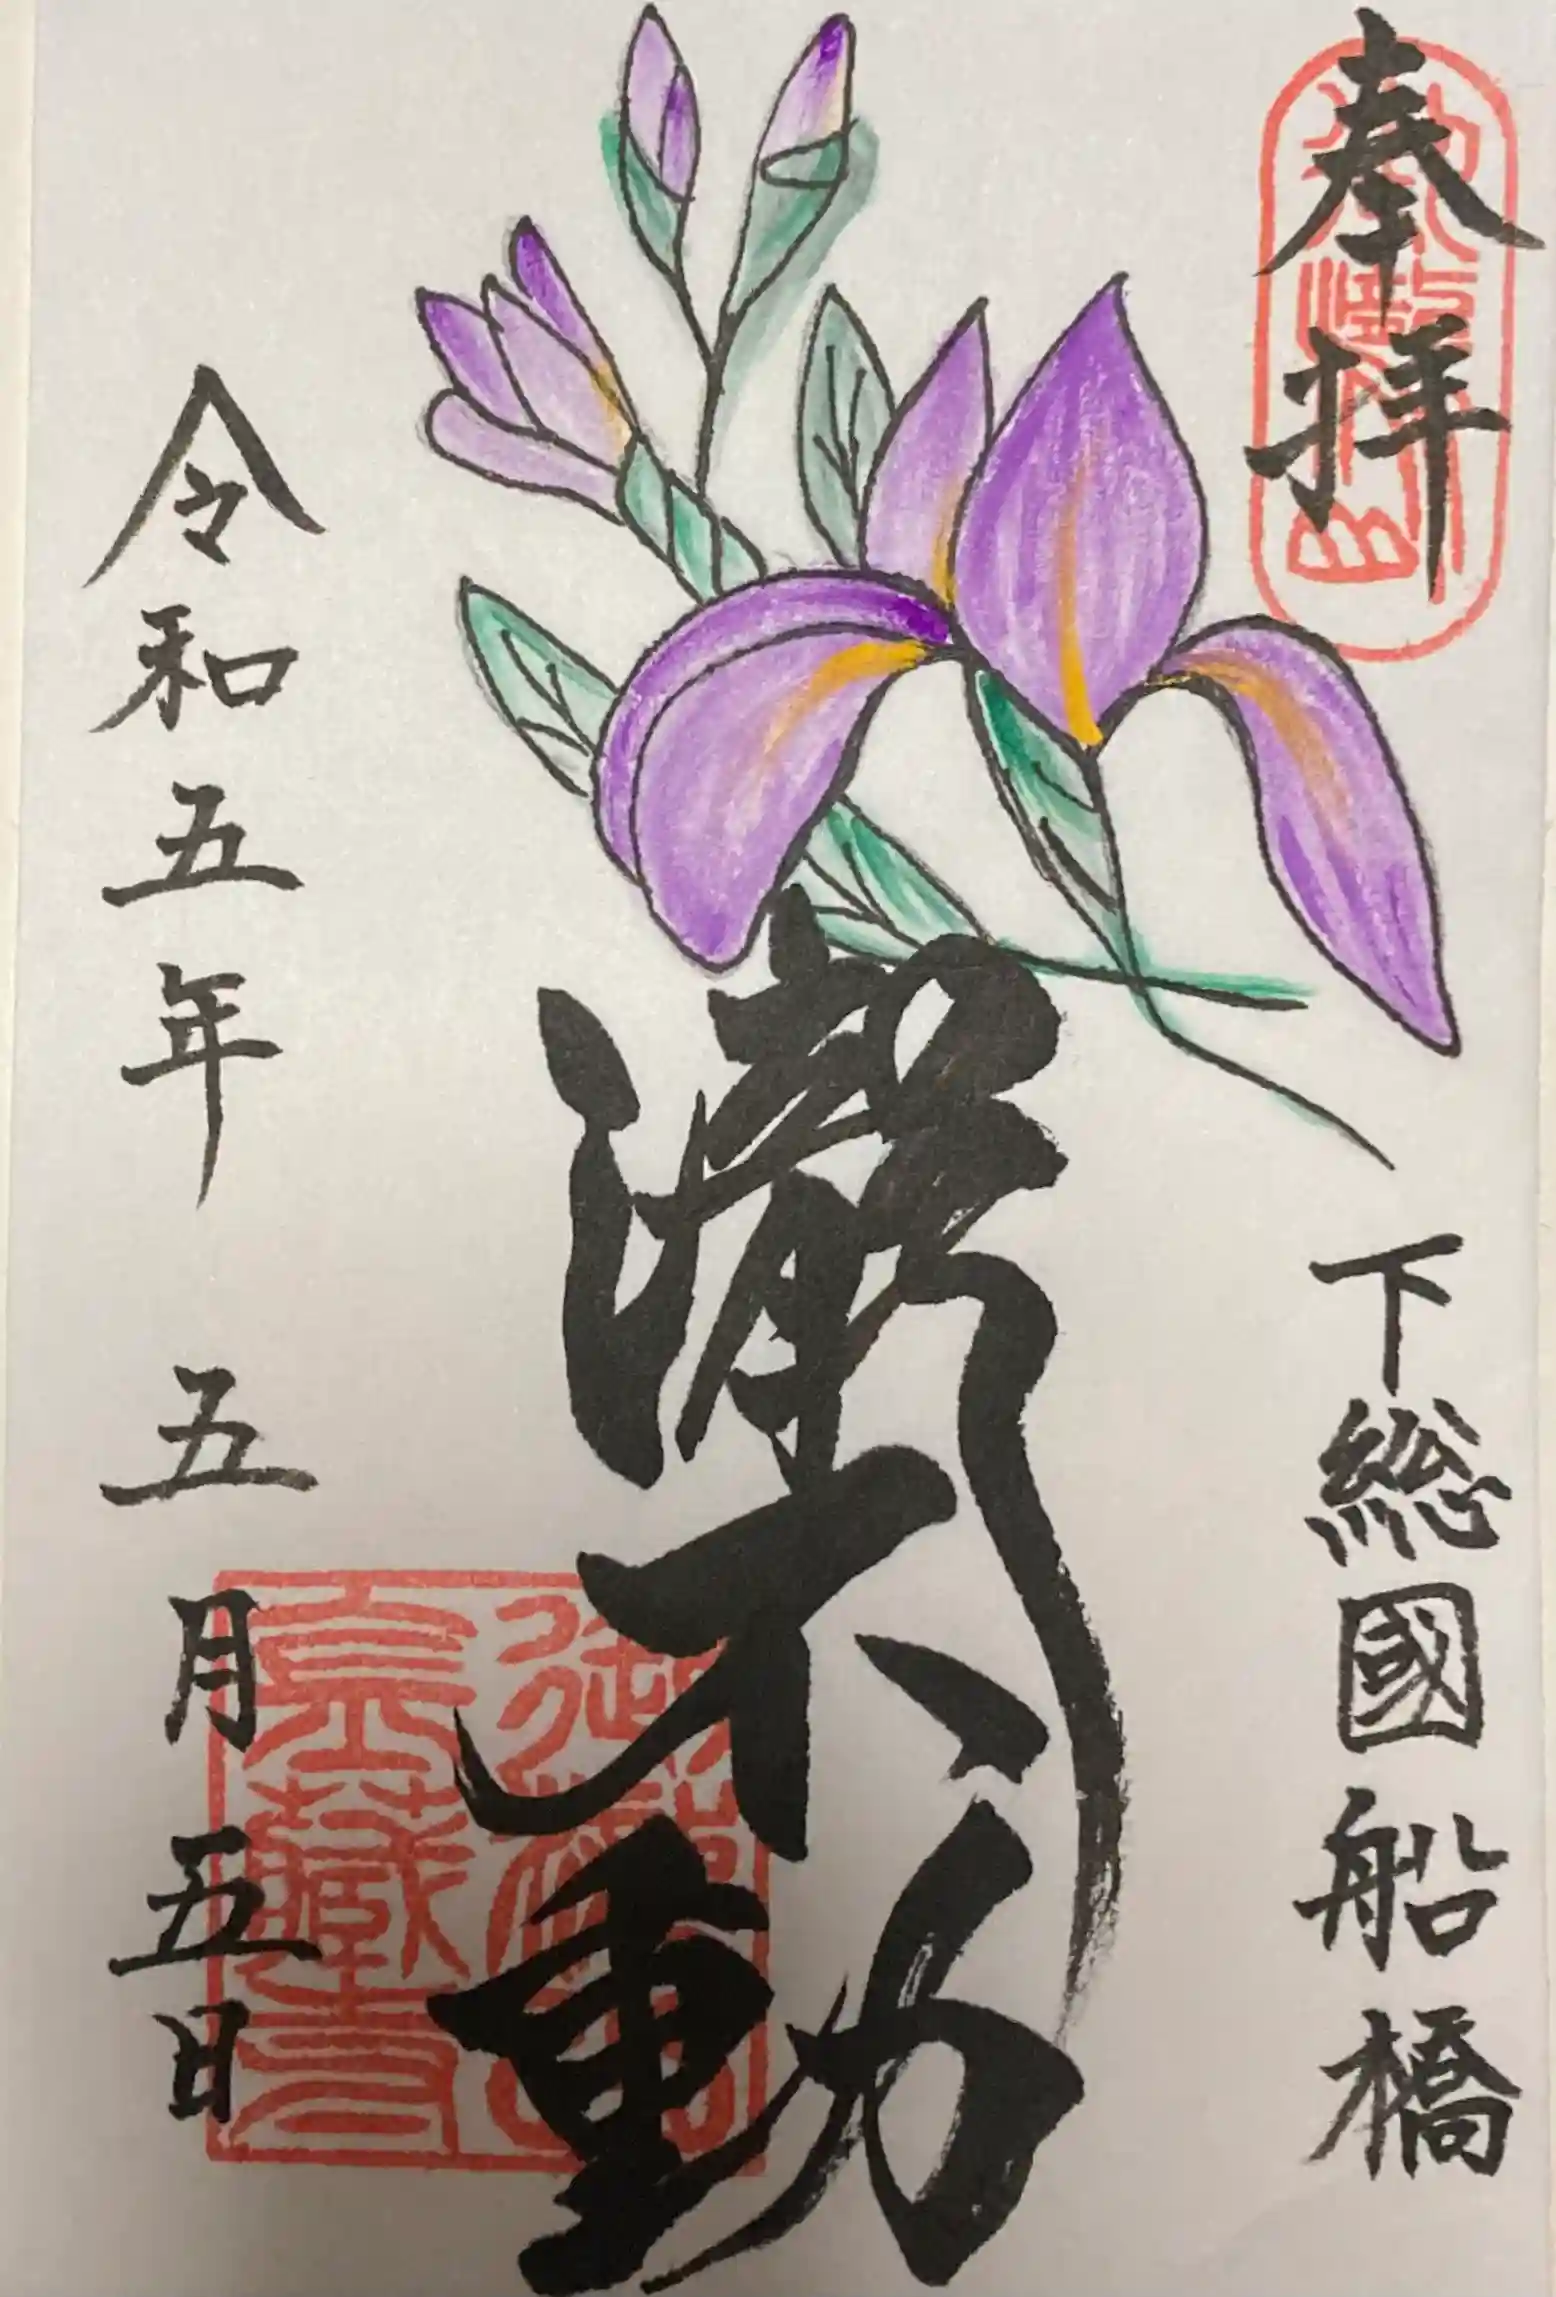 奉拝
下総國船橋
瀧不動
令和五年 五月五日